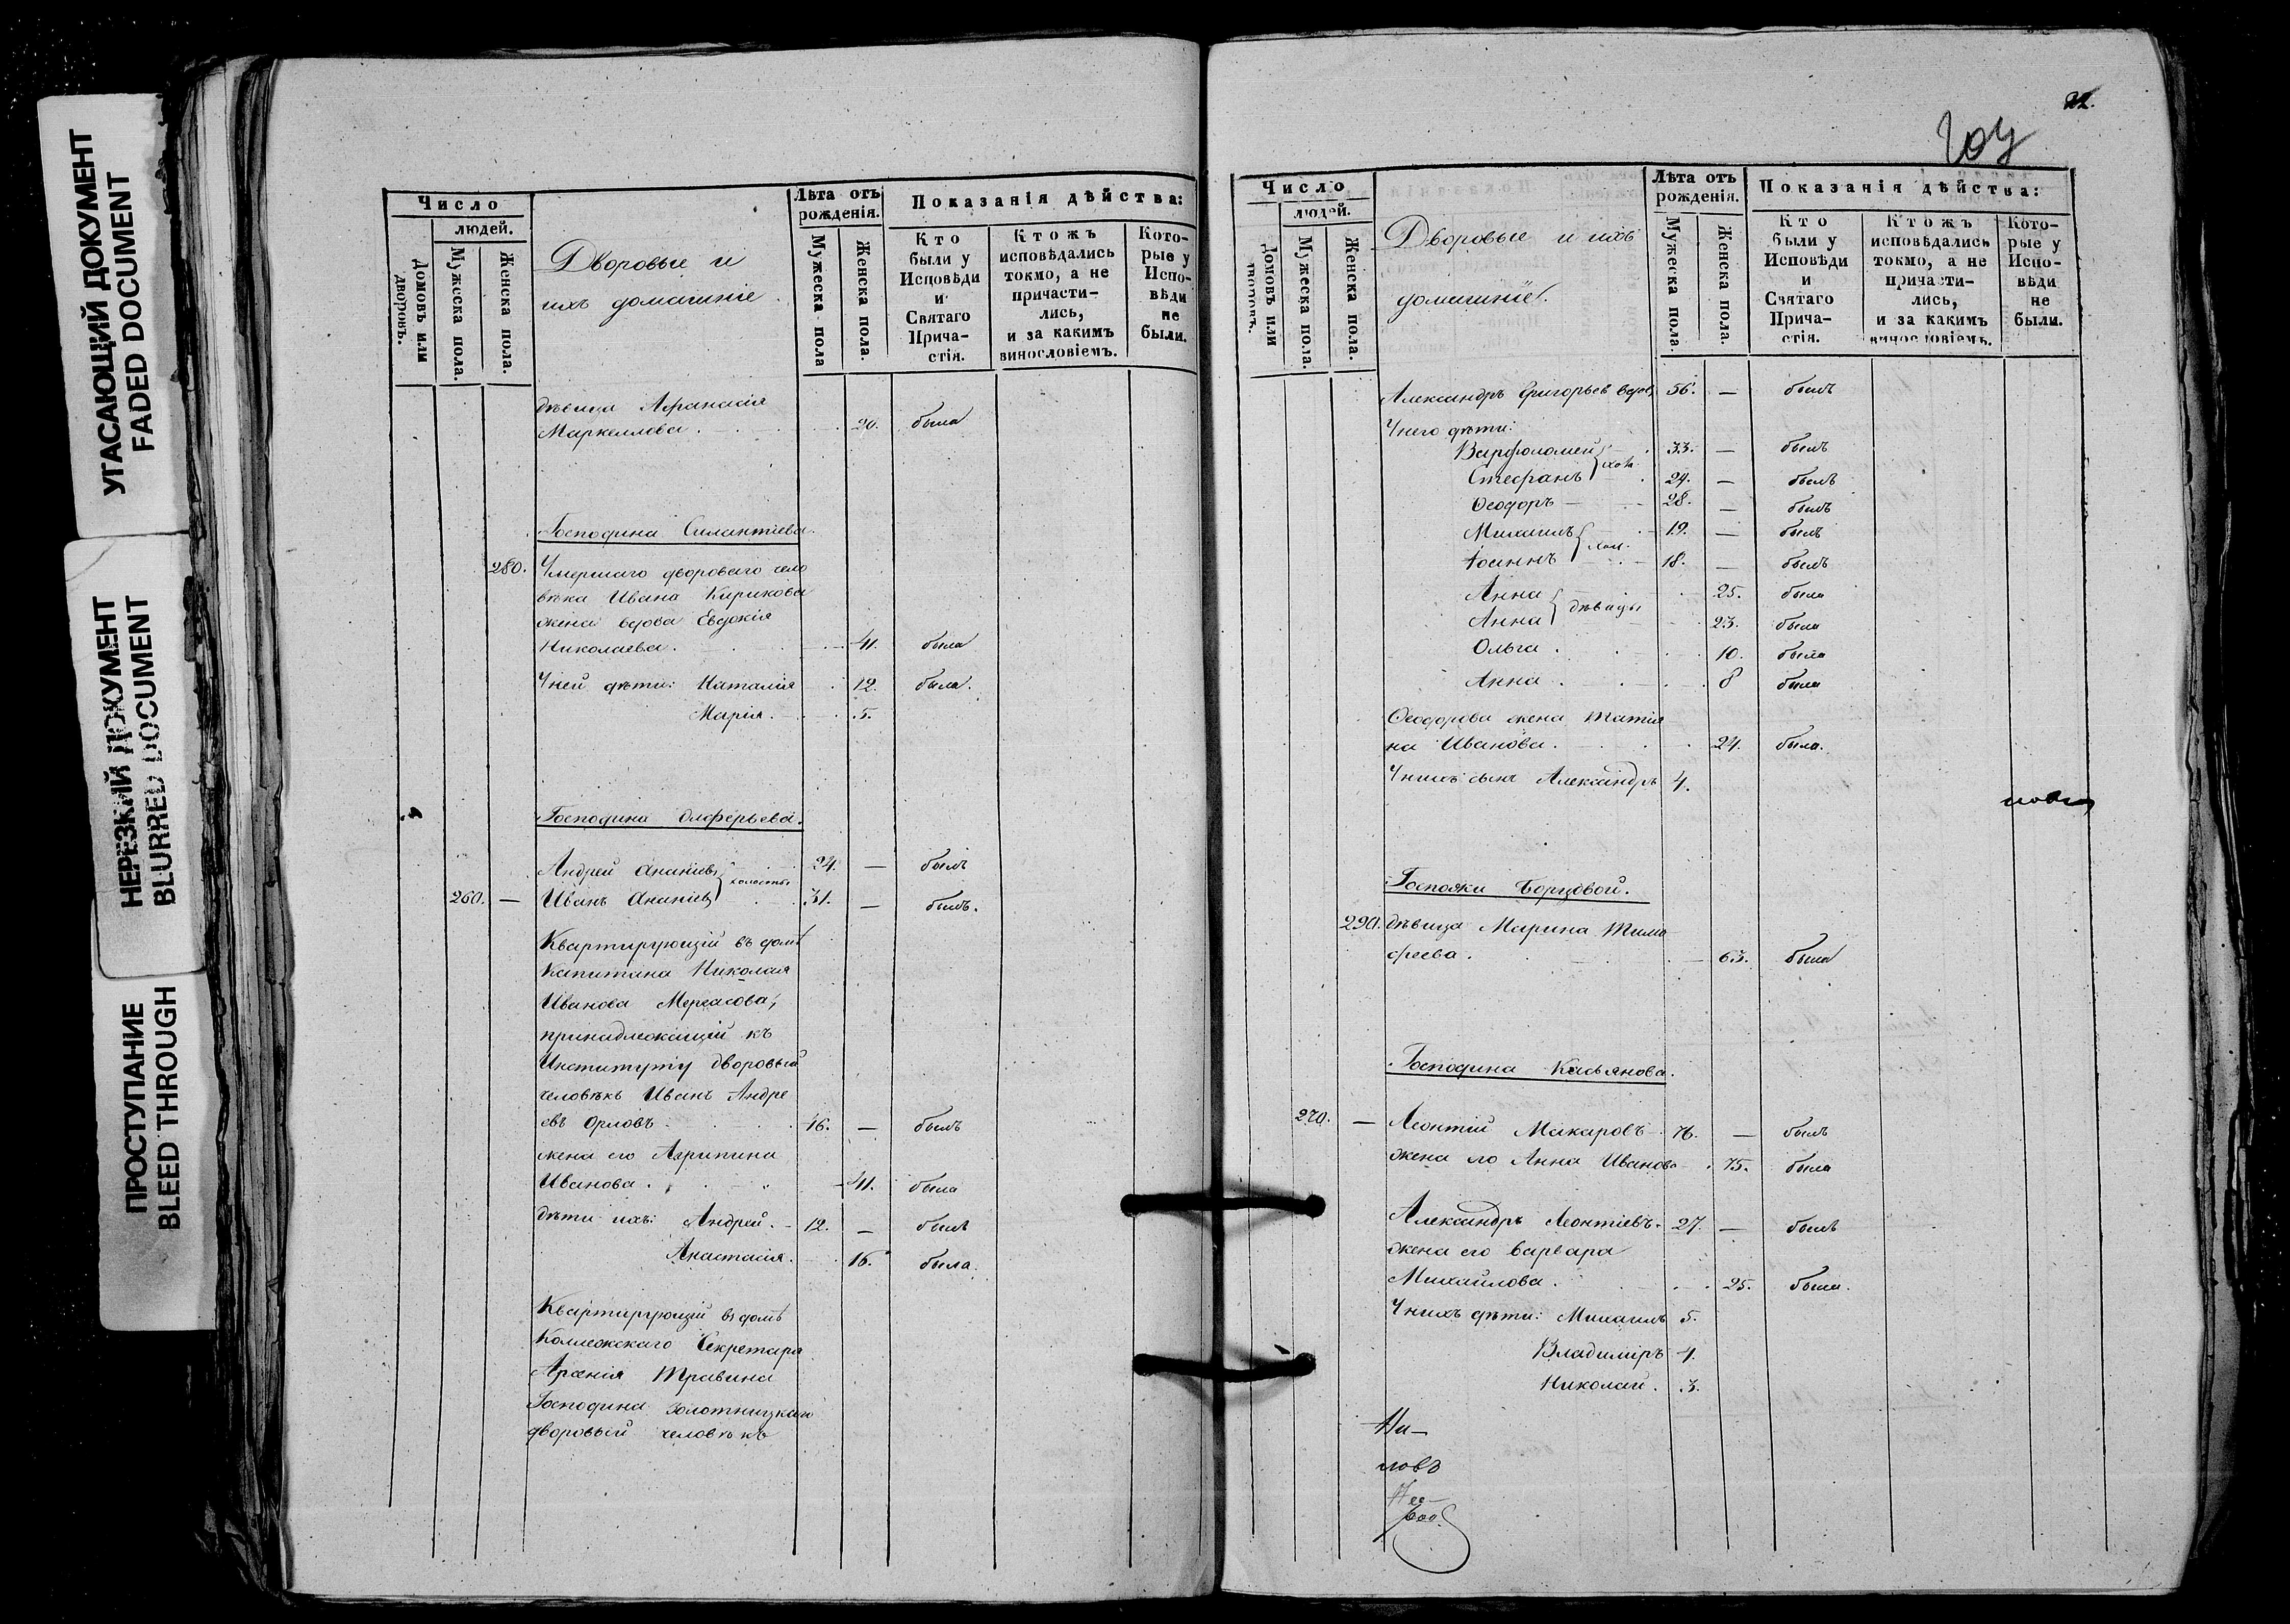 УГАСАЮЩИЙ ДОКУМЕНТ
FADED DOCUMENT
НЕРЕЗКИЙ ДОКУМЕНТ
BLURRED DOCUMENT
ПРОСТУПАНИЕ
BLEED THROUGH
Число
людей.
Домовъ или дворовъ.
Мужеска пола.
Женска пола.
Дворовые и
ихъ домашніе.
Лѣта отъ рожденія.
Мужеска пола
Женска пола.
Показанія дѣйства:
Кто были у Исповѣди и Святаго Прича-стія.
Ктожъ исповѣдались токмо, а не причасти-лись, и за какимъ винословіемъ.
Кото-рые у Испо-вѣди не были.
дѣвица Афанасія
Маркеллова. 20. была
Господина Силантіева
280. Умершаго двороваго чело
вѣка Ивана Кирикова
жена вдова Евдокія
Николаева. 41. была
У ней дѣти: Наталія 12. была.
Марія. 5.
Господина Алферьева.
Андрей Ананіевъ 24. — былъ
холосты
260. — Иванъ Ананіевъ 31. — былъ.
Квартирующій въ домѣ
Капитана Николая
Иванова Мергасова,
принадлежащій къ
Институту дворовый
человѣкъ Иванъ Андре
евъ Орловъ 46. — былъ
жена его Агрипина
Иванова. 41. была
дѣти ихъ: Андрей. 12. — былъ
Анастасія. 16. была.
Квартирующій въ домѣ
Коллежскаго Секретаря
Арсенія Травина
Господина Золотницкаго
дворовый человѣкъ
22.
Число
людей.
Домовъ или дворовъ.
Мужеска пола.
Женска пола.
Дворовые и ихъ
домашніе.
Лѣта отъ рожденія.
Мужеска пола.
Женска пола.
Показанія дѣйства:
Кто были у Исповѣди и Святаго Прича-стія.
Ктожъ исповѣдались токмо, а не причасти-лись, и за какимъ винословіемъ.
Кото-рые у Испо-вѣди не были.
Александръ Григорьев вдов. 56. — былъ
У него дѣти:
Варфоломей 33. — былъ
хол.
Стефанъ 24. — былъ
Ѳеодоръ — 28. — былъ
Михаилъ 19. — былъ
хол.
Іоаннъ 18. — былъ
Анна 25. была
дѣвицы
Анна 23. была
Ольга. 10. была
Анна. 8 была
Ѳеодорова жена Татія
на Иванова. 24. была.
У нихъ сынъ Александръ 4.
Госпожи Борзовой.
290. дѣвица Марина Тимо
феева. 63. была
Господина Касьянова.
270. — Леонтій Макаровъ 76. — былъ
жена его Анна Иванова 75. была
Александръ Леонтіевъ. 27. — былъ
жена его Варвара
Михайлова. 25. была.
У нихъ дѣти: Михаилъ 5.
Владиміръ 4.
Николай. 3.
ловъ